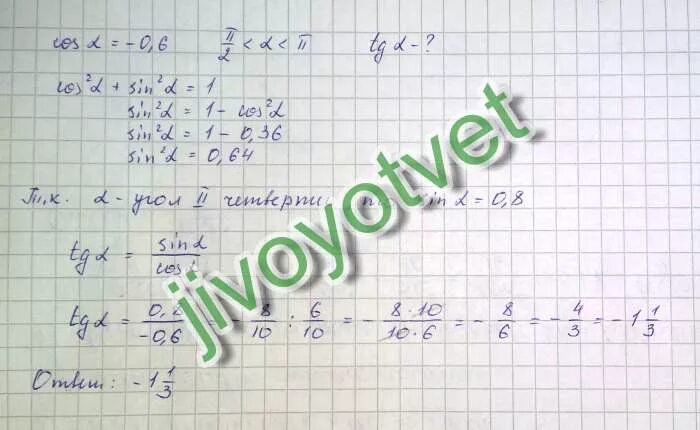 cos α = -0,6 π/2 < α < π tg α - ?
cos²α + sin²α = 1
sin²α = 1 - cos²α
sin²α = 1 - 0,36
sin²α = 0,64
Т.к. α - угол II четверти, sin α = 0,8
tg α = sin α / cos α
tg α = 0,8 / -0,6 = - 8/10 : 6/10 = - 8·10 / 10·6 = - 8/6 = - 4/3 = - 1 1/3
Ответ: - 1 1/3
jivoyotvet